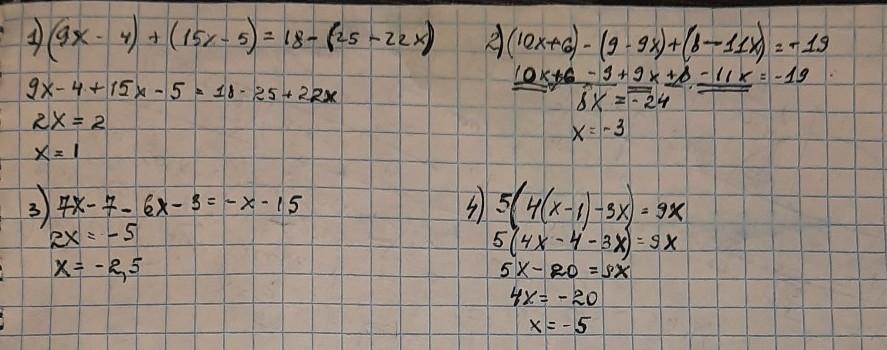 1) (9x - 4) + (15x - 5) = 18 - (25 - 22x)
9x - 4 + 15x - 5 = 18 - 25 + 22x
2x = 2
x = 1
2) (10x+6) - (9 - 9x) + (8 - 11x) = -19
10x+6 - 9 + 9x + 8 - 11x = -19
8x = -24
x = -3
3) 7x - 7 - 6x - 3 = -x - 15
2x = -5
x = -2,5
4) 5(4(x-1) - 3x) = 9x
5(4x - 4 - 3x) = 9x
5x - 20 = 9x
4x = -20
x = -5